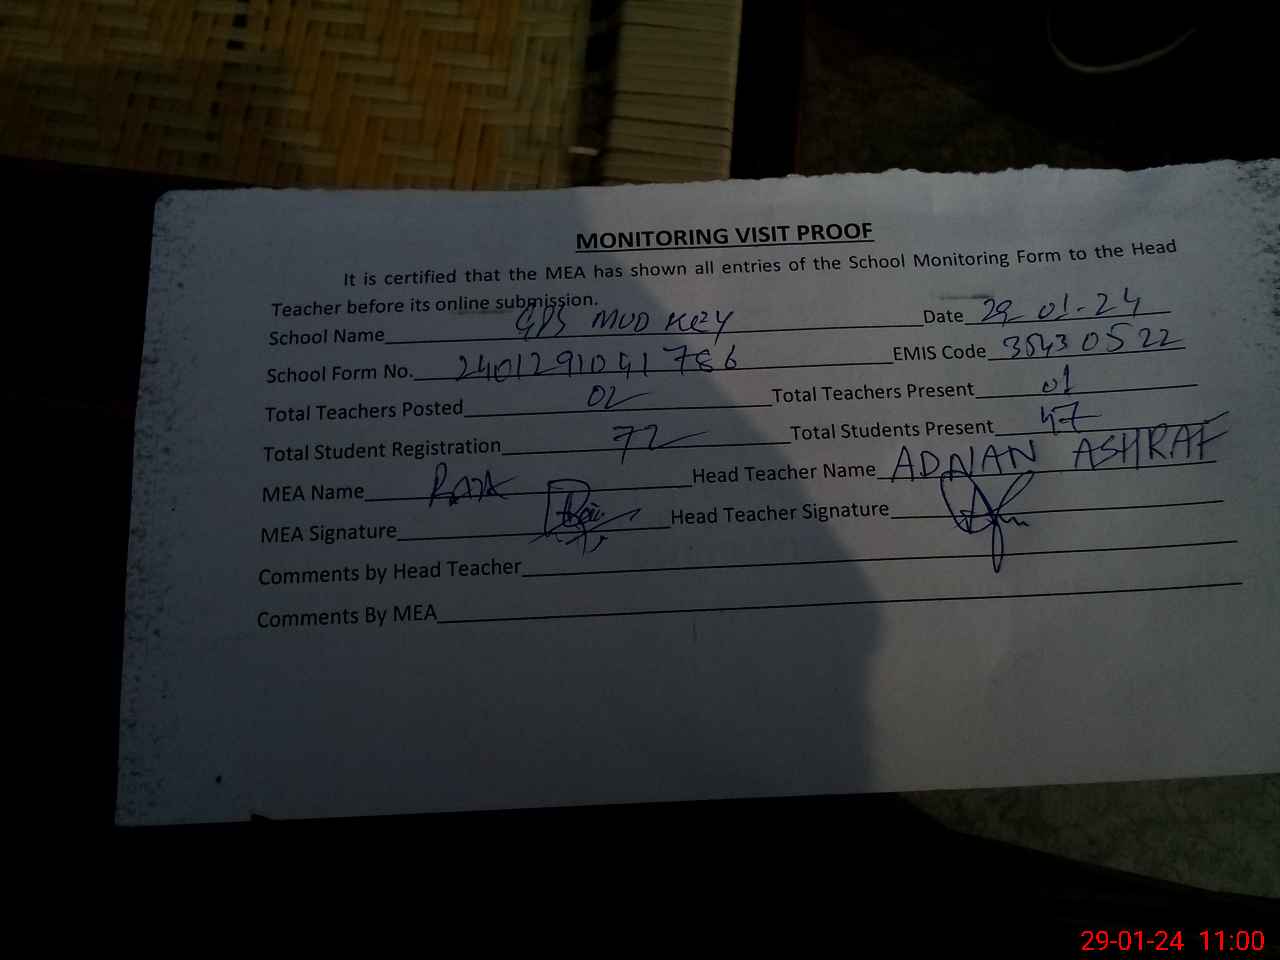 MONITORING VISIT PROOF
It is certified that the MEA has shown all entries of the School Monitoring Form to the Head
Teacher before its online submission.
School Name GPS MUD KEY Date 29-01-24
School Form No. 2401291041786 EMIS Code 35430522
Total Teachers Posted 02 Total Teachers Present 01
Total Student Registration 72 Total Students Present 47
MEA Name Head Teacher Name ADNAN ASHRAF
MEA Signature Head Teacher Signature
Comments by Head Teacher
Comments By MEA
29-01-24 11:00